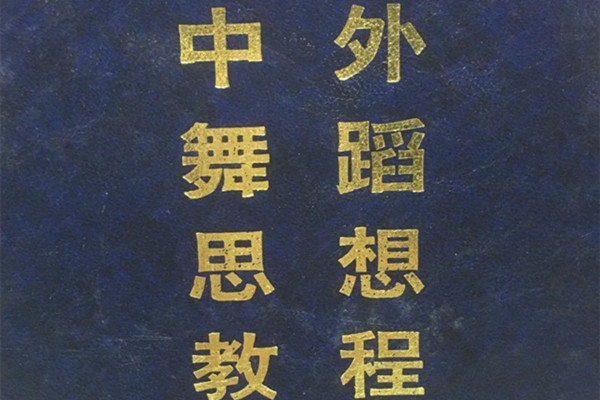 中外
舞蹈
思想
教程